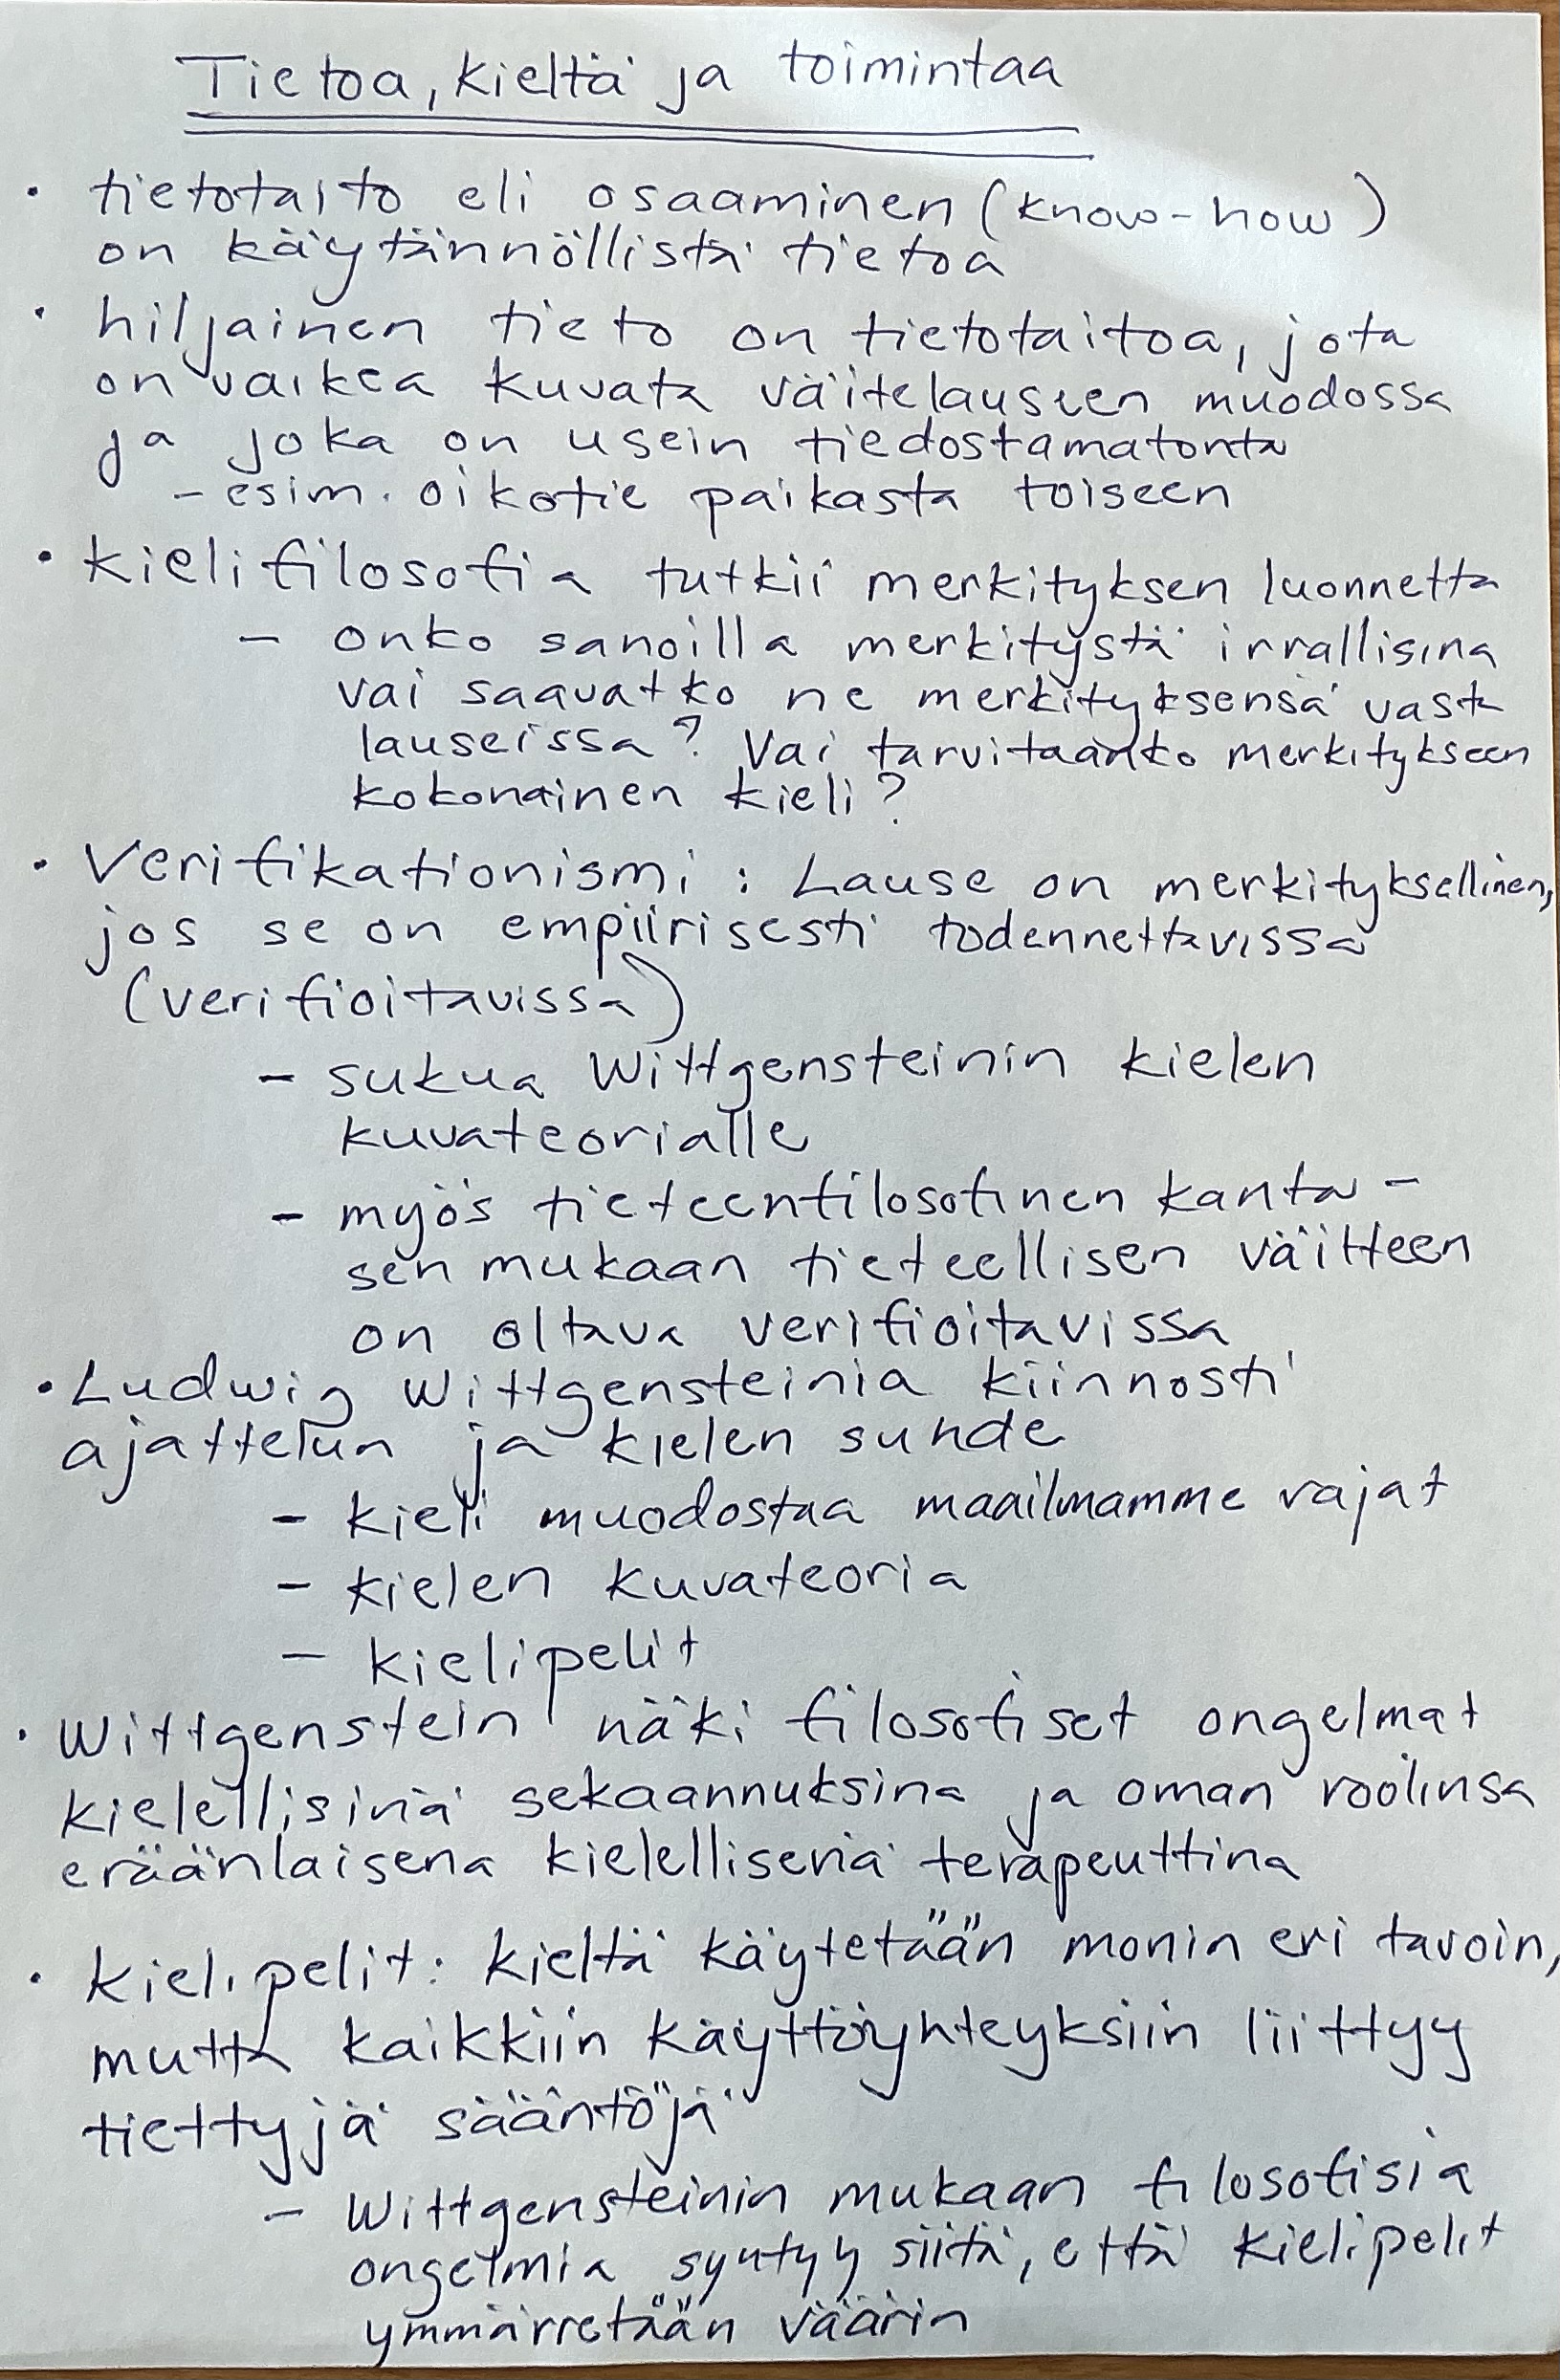 Tietoa, kieltä ja toimintaa
• tietotaito eli osaaminen (know-how)
on käytännöllistä tietoa
• hiljainen tieto on tietotaitoa, jota
on vaikea kuvata väitelauseen muodossa
ja joka on usein tiedostamatonta
- esim. oikotie paikasta toiseen
• kielifilosofia tutkii merkityksen luonnetta
- onko sanoilla merkitystä irrallisina
vai saavatko ne merkityksensä vasta
lauseissa? Vai tarvitaanko merkitykseen
kokonainen kieli?
• Verifikationismi: Lause on merkityksellinen,
jos se on empiirisesti todennettavissa
(verifioitavissa)
- sukua Wittgensteinin kielen
kuvateorialle
- myös tieteenfilosofinen kanta -
sen mukaan tieteellisen väitteen
on oltava verifioitavissa
• Ludwig Wittgensteinia kiinnosti
ajattelun ja kielen suhde
- kieli muodostaa maailmamme rajat
- kielen kuvateoria
- kielipelit
• Wittgenstein näki filosofiset ongelmat
kielellisinä sekaannuksina ja oman roolinsa
eräänlaisena kielellisenä terapeuttina
• Kielipelit: kieltä käytetään monin eri tavoin,
mutta kaikkiin käyttöyhteyksiin liittyy
tiettyjä sääntöjä
- Wittgensteinin mukaan filosofisia
ongelmia syntyy siitä, että kielipelit
ymmärretään väärin